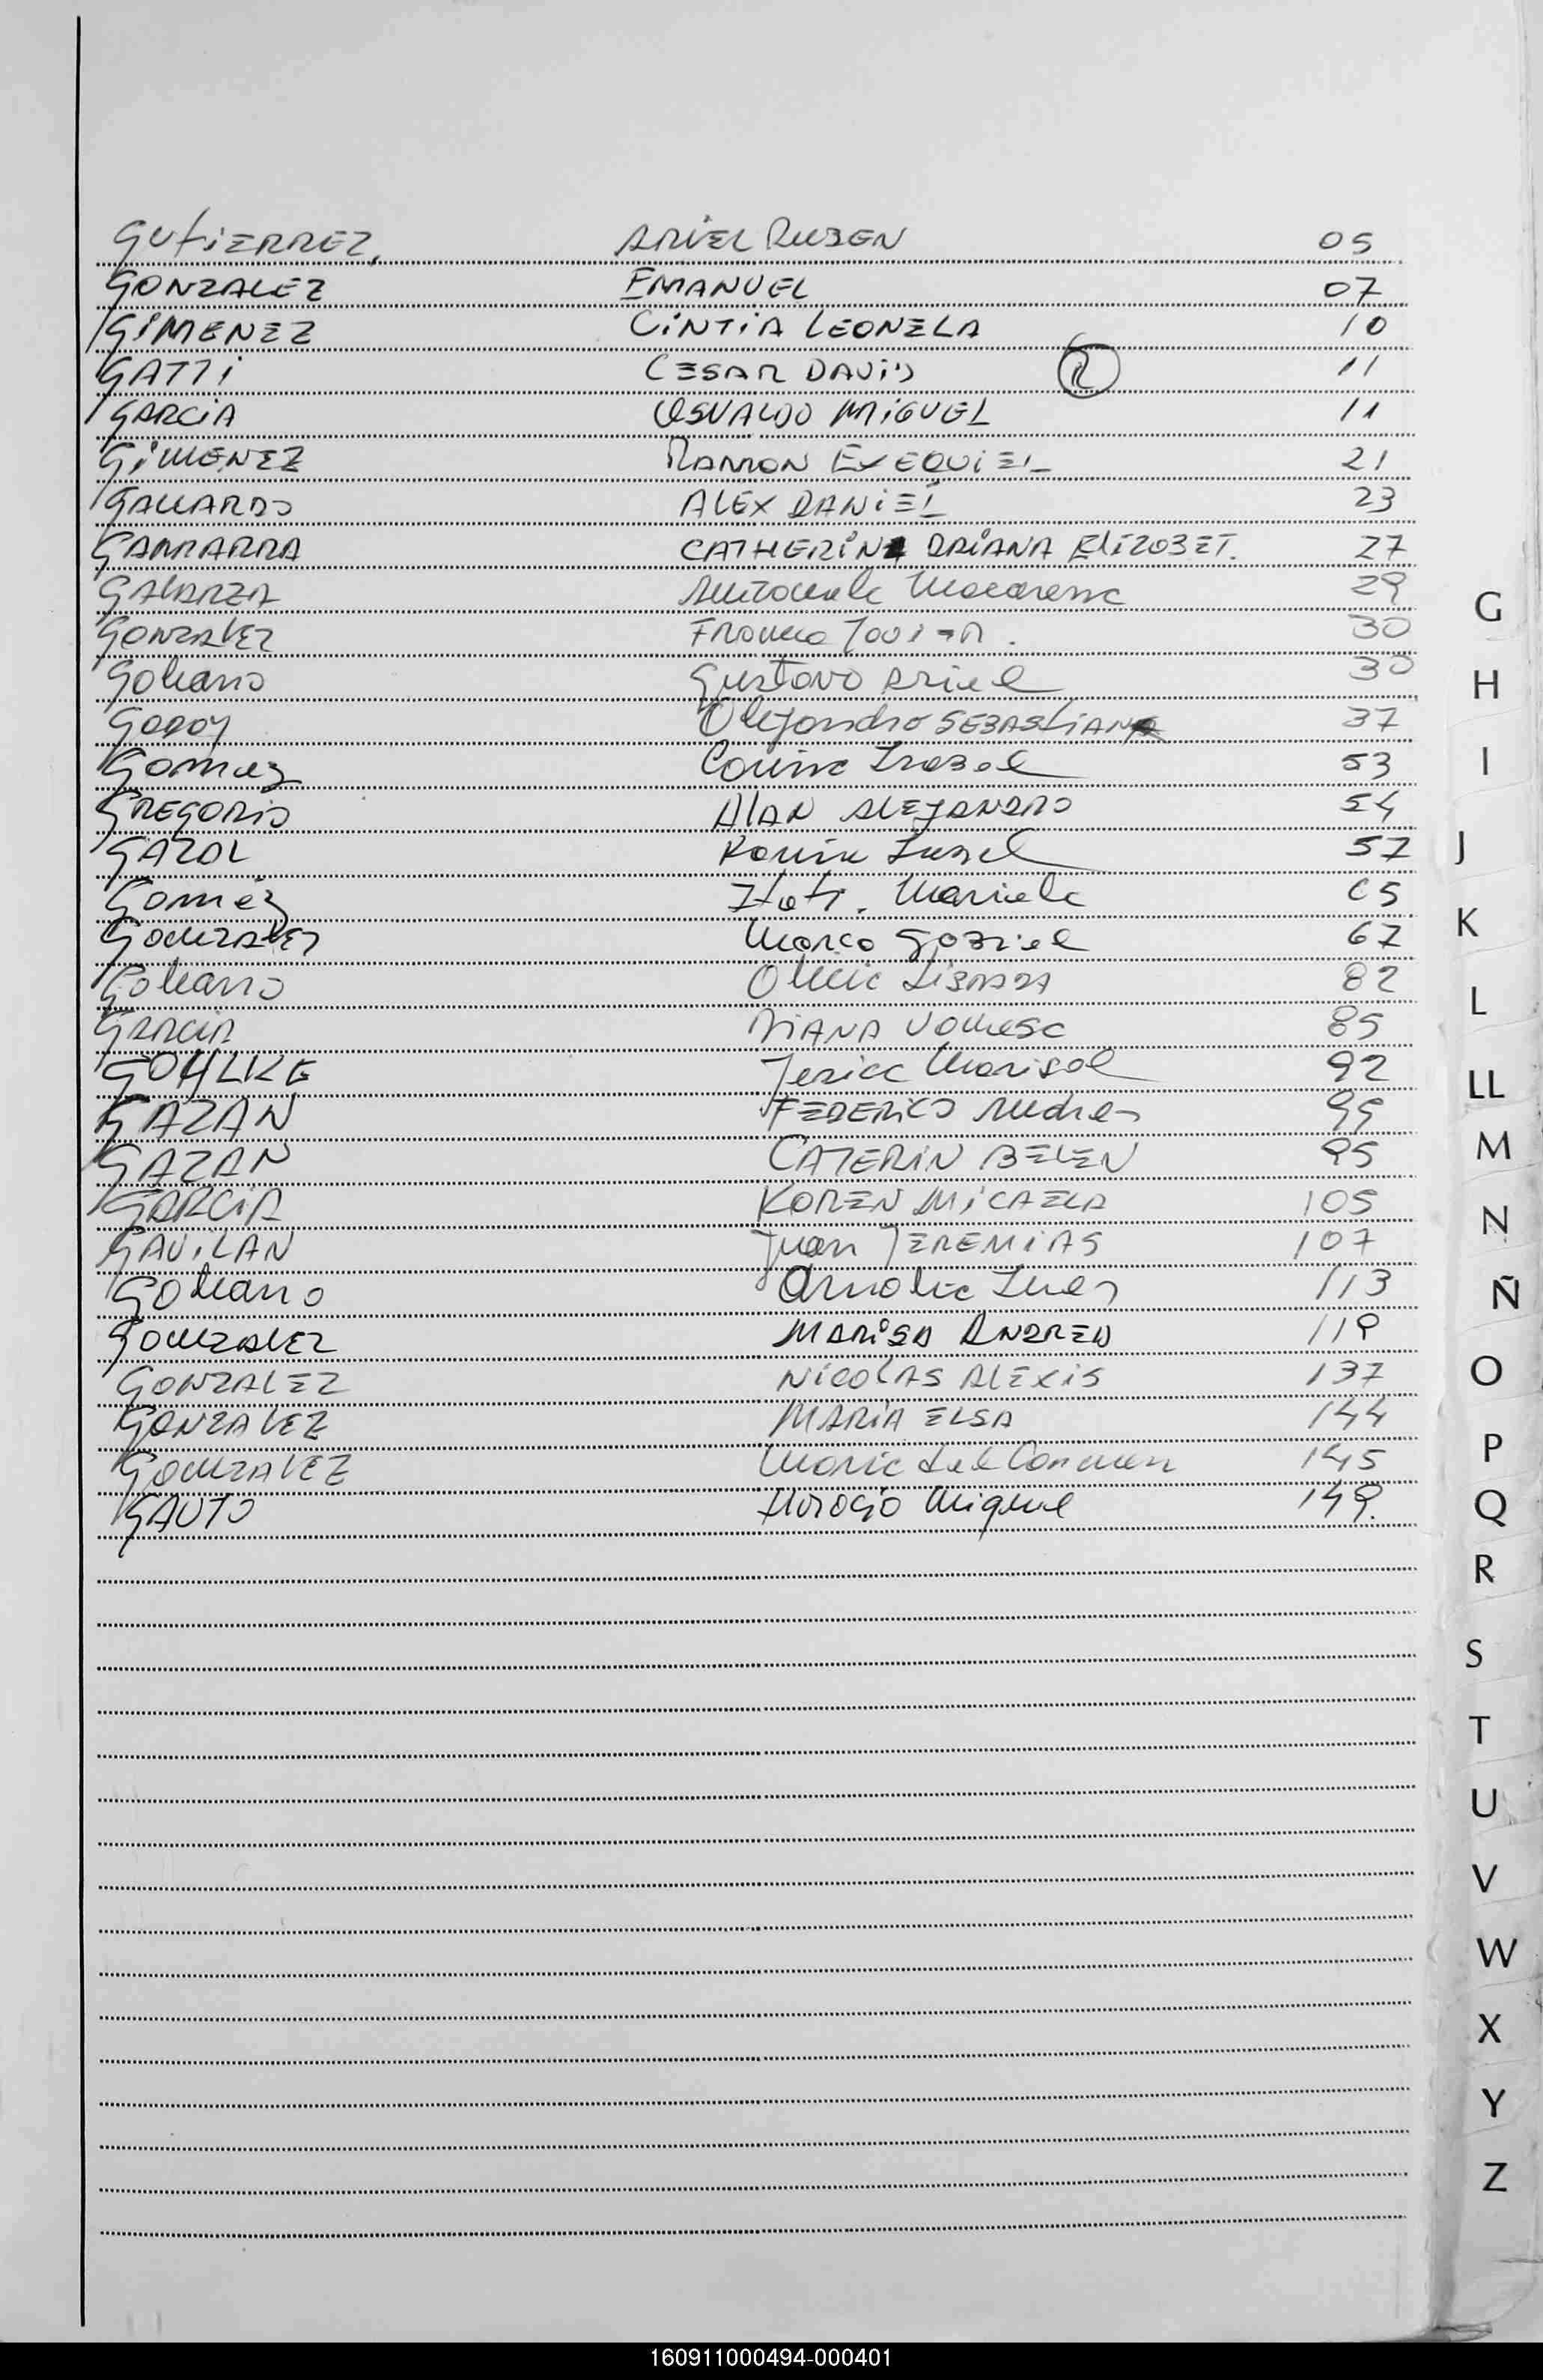 GUTIERREZ, ARIEL RUBEN 05
GONZALEZ EMANUEL 07
GIMENEZ CINTIA LEONELA 10
GATTI CESAR DAVID 11
GARCIA OSVALDO MIGUEL 11
GIMENEZ RAMON EXEQUIEL 21
GALLARDO ALEX DANIEL 23
GAMARRA DAIANA ELIZABET. 27
GALARZA Antonela Macarena 29
GONZALEZ Franco Javier. 30
Galeano Gustavo Ariel 30
GODOY Alejandro SEBASTIAN 37
Gomez Isabel 53
GREGORIO ALAN ALEJANDRO 54
GAZOL Karina 57
Gomez Itati. Mariela 65
GONZALEZ Marco Gabriel 67
Galeano 82
GARCIA DIANA Vanesa 85
GOHLKE Marisol 92
GAZAN FEDERICO Andres 95
GAZAN CATERIN BELEN 95
GARCIA KAREN MICAELA 105
GAVILAN Juan JEREMIAS 107
Galeano Ines 113
GONZALEZ MARISA ANDREA 119
GONZALEZ NICOLAS ALEXIS 137
GONZALEZ MARIA ELSA 144
GONZALEZ Maria del Carmen 145
GAUTO Horacio Miguel 149.
G
H
I
J
K
L
LL
M
N
Ñ
O
P
Q
R
S
T
U
V
W
X
Y
Z
160911000494-000401